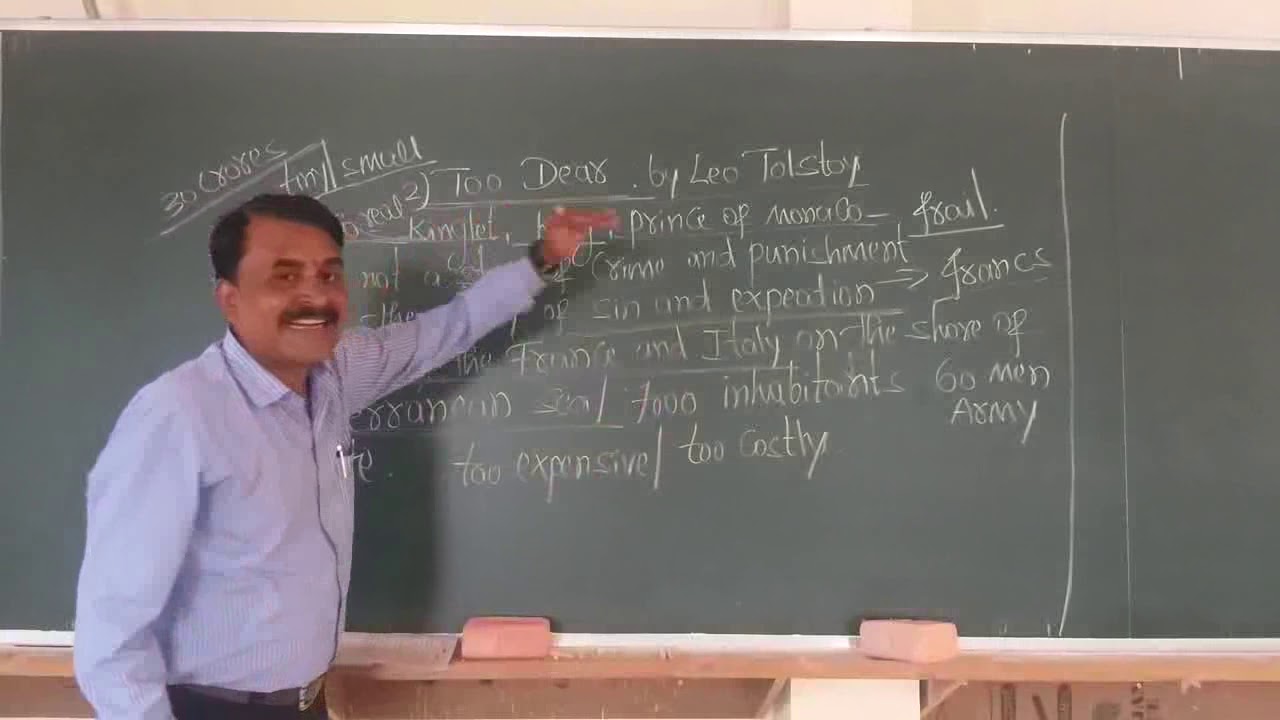 30 crores
tiny/small
2) Too Dear . by Leo Tolstoy
real Kinglet, prince of monaco- frail.
not a of crime and punishment
the of sin and expeation → francs
the France and Italy on the shore of
erranean sea/ 7000 inhabitants 60 men
Army
too expensive/ too costly